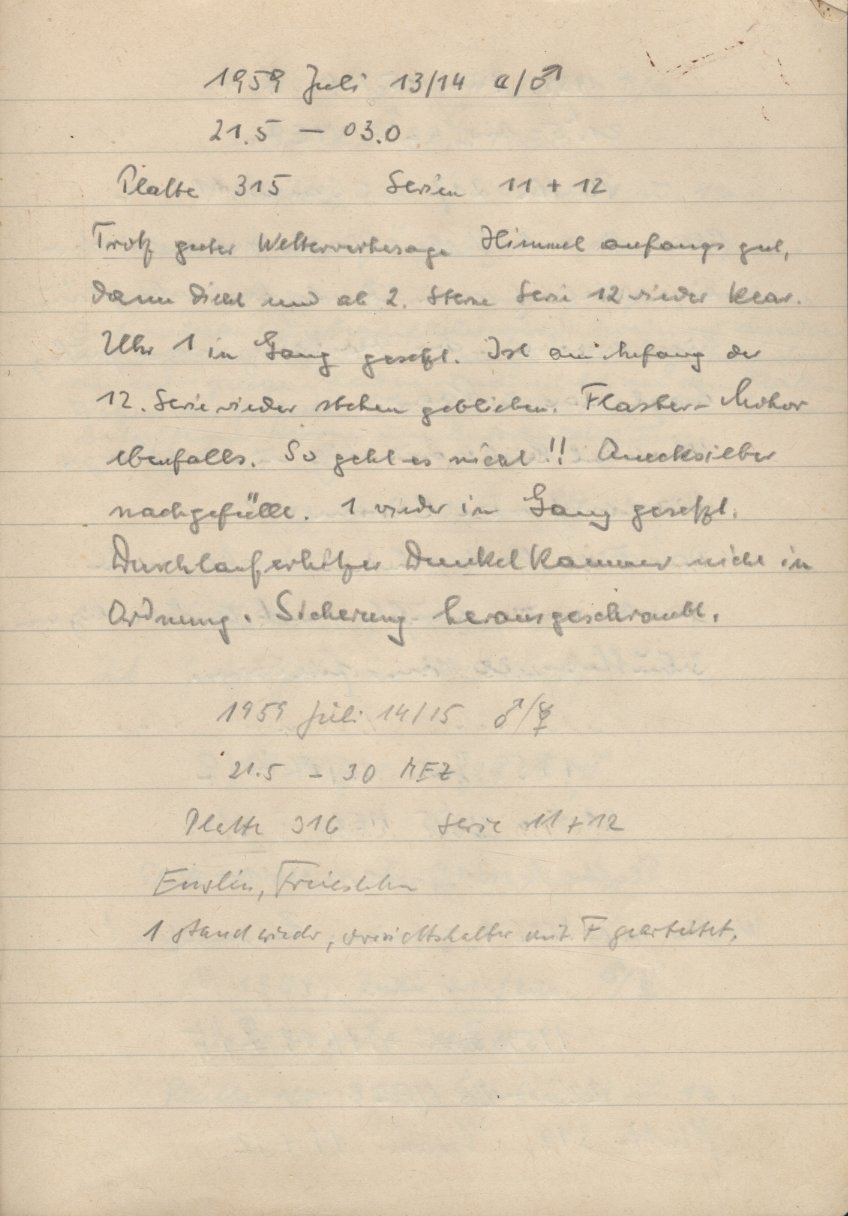 1959 Juli 13/14 ☾/♂
21.5 — 03.0
Platte 315 Serien 11 + 12
Trotz guter Wettervorhersage Himmel anfangs gut,
dann dicht und ab 2. Stern Serie 12 wieder klar.
Uhr 1 in Gang gesetzt. Ist am Anfang der
12. Serie wieder stehen geblieben. Flasher-Motor
ebenfalls. So geht es nicht!! Quecksilber
nachgefüllt. 1 wieder in Gang gesetzt.
Durchlauferhitzer Dunkelkammer nicht in
Ordnung. Sicherung herausgeschraubt.
1959 Juli 14/15 ♂/☿
21.5 – 3.0 MEZ
Platte 316 Serie 11 + 12
Enslin,
1 stand wieder, mit F gearbeitet.